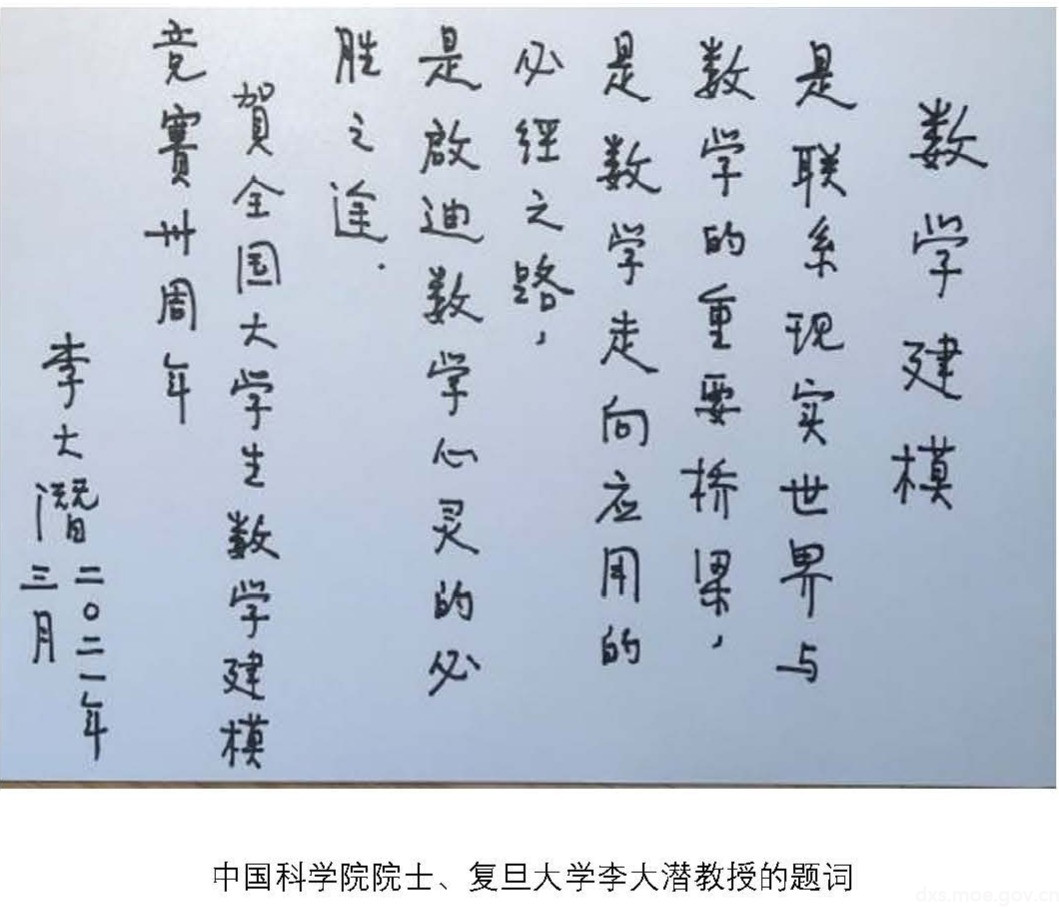 数学建模
是联系现实世界与
数学的重要桥梁，
是数学走向应用的
必经之路，
是啟迪数学心灵的必
胜之途.
賀全国大学生数学建模
竞賽卅周年
李大潛
二〇二一年
三月
中国科学院院士、复旦大学李大潜教授的题词
dxs.moe.gov.cn